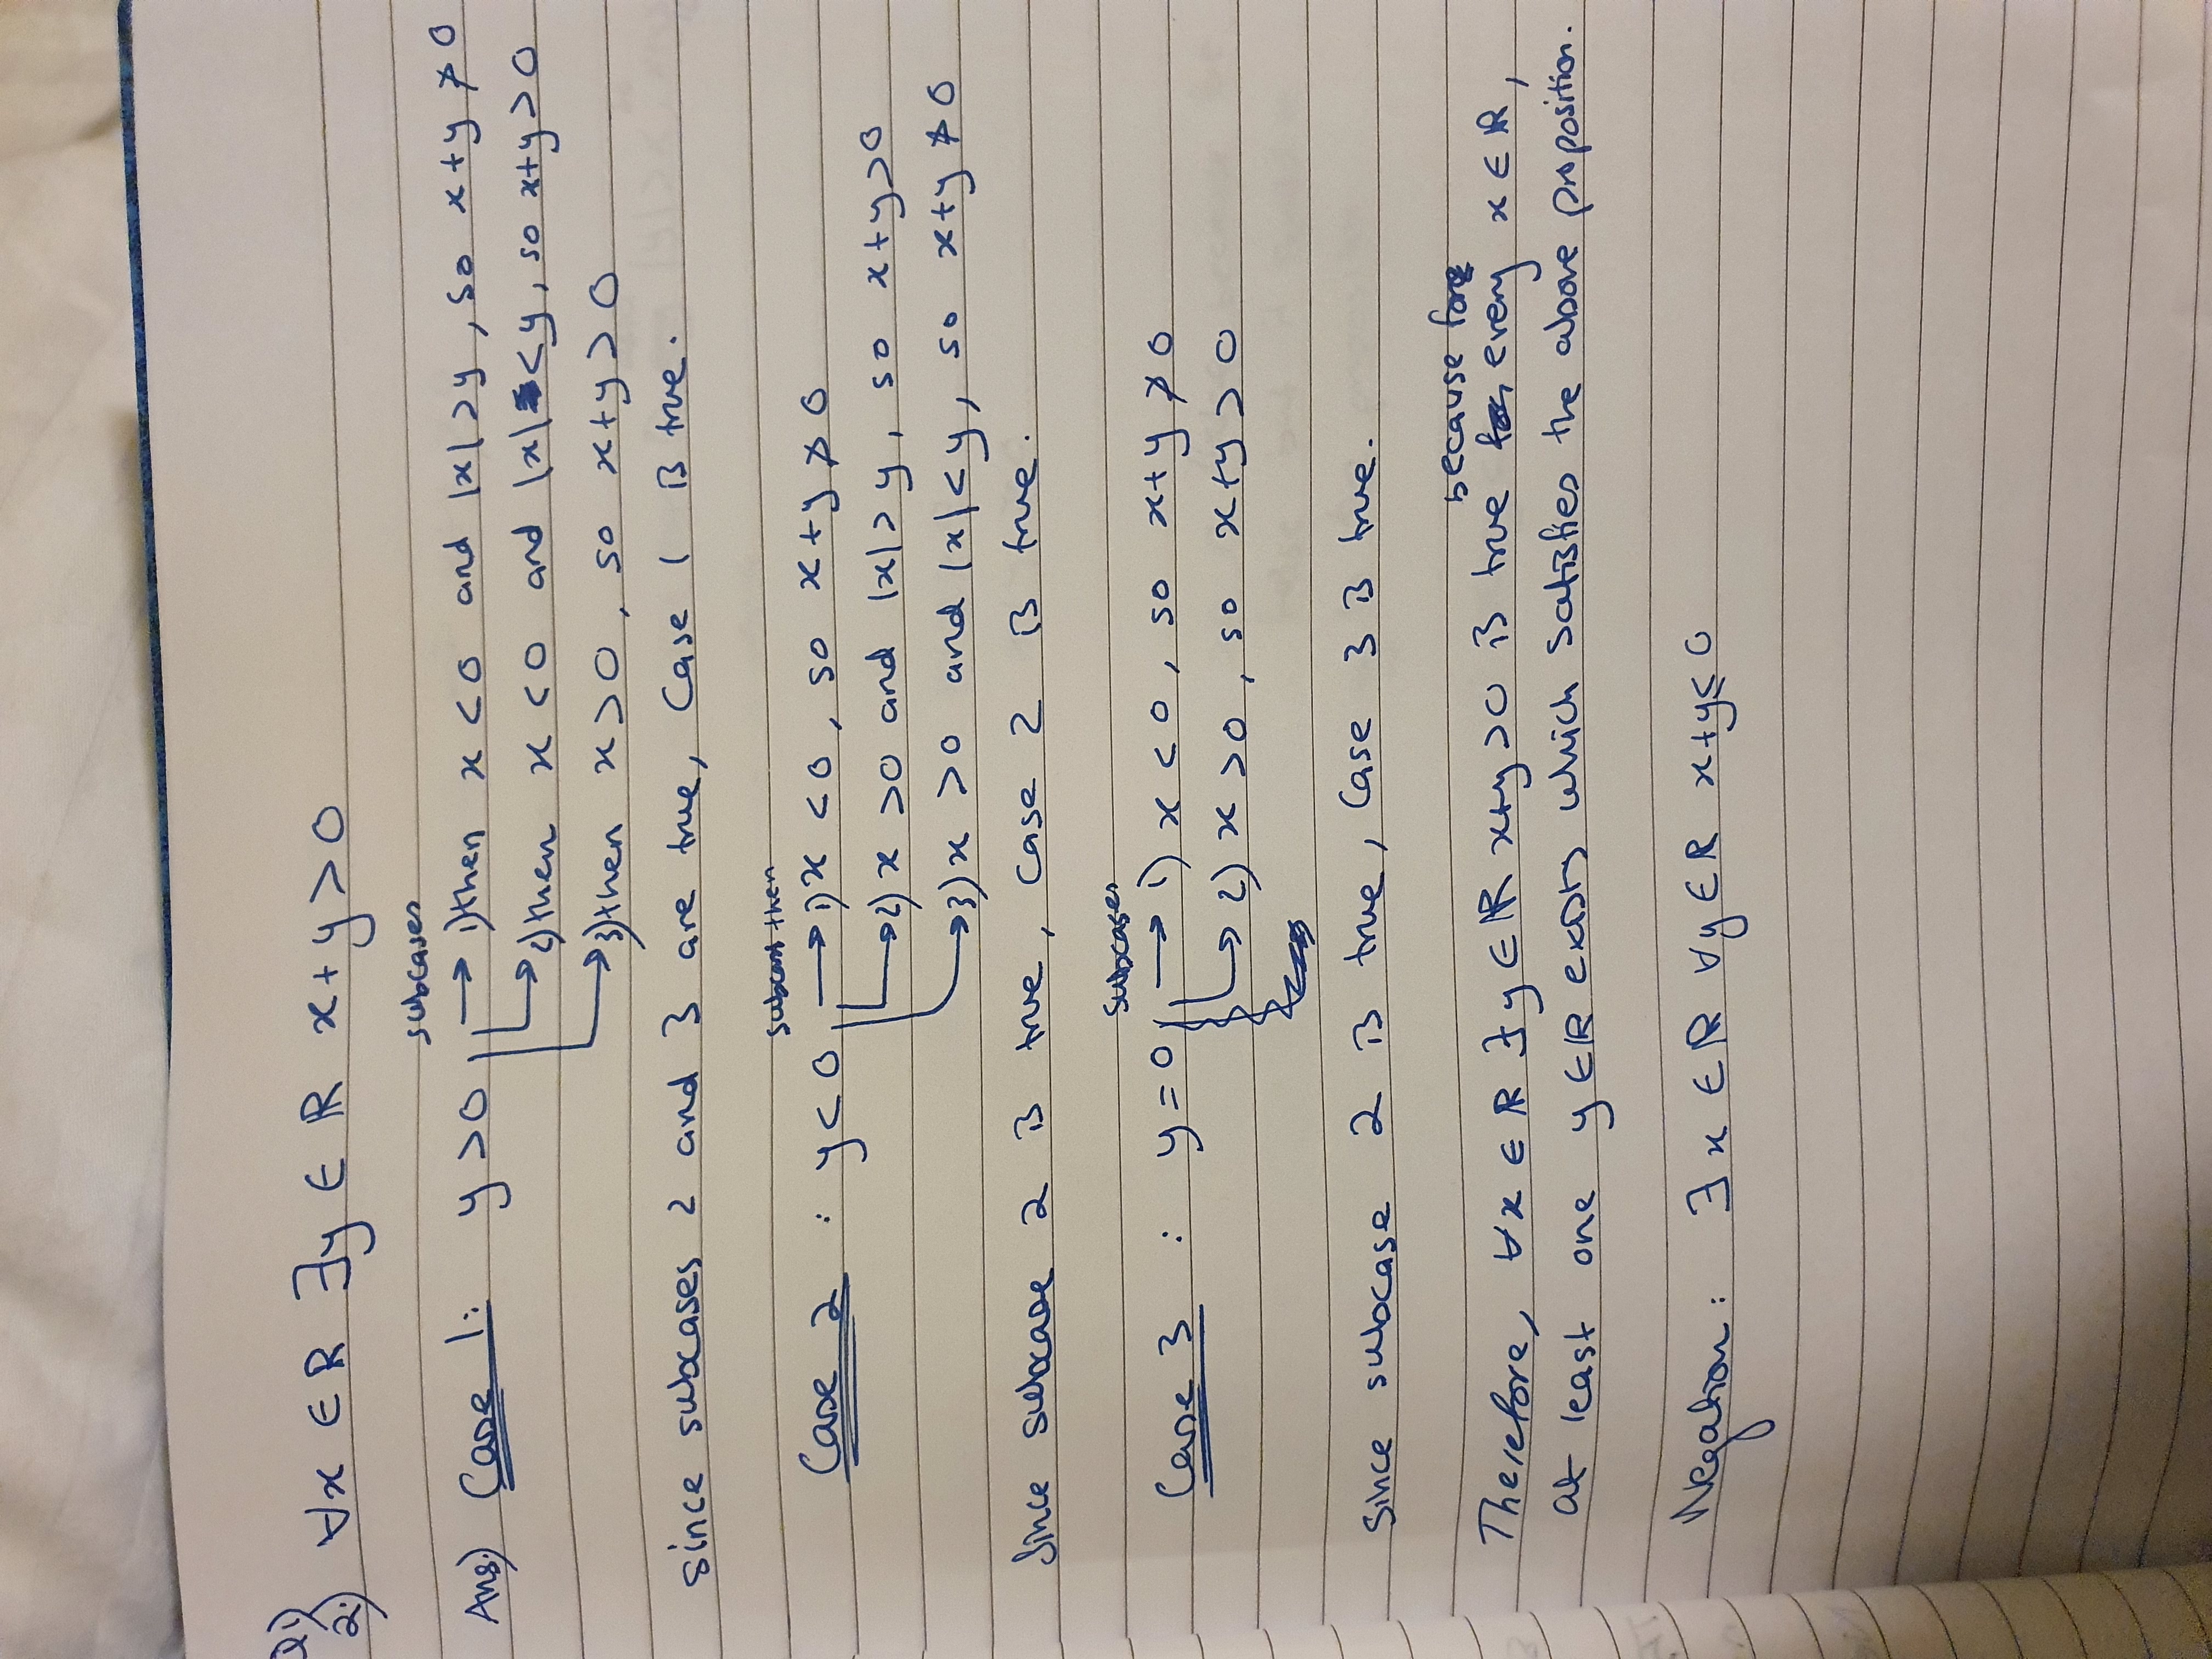 Q1)
2.) ∀x ∈ ℝ ∃y ∈ ℝ x+y>0
subcases
Ans.) Case 1: y>0 → 1) then x<0 and |x|>y, so x+y ≯ 0
→ 2) then x<0 and |x|<y, so x+y>0
→ 3) then x>0, so x+y>0
since subcases 2 and 3 are true, Case 1 is true.
then
Case 2 : y<0 → 1) x<0, so x+y ≯ 0
→ 2) x>0 and |x|>y, so x+y>0
→ 3) x>0 and |x|<y, so x+y ≯ 0
Since subcase 2 is true, Case 2 is true.
Subcases
Case 3 : y=0 → 1) x<0, so x+y ≯ 0
→ 2) x>0, so x+y>0
Since subcase 2 is true, Case 3 is true.
because for
Therefore, ∀x ∈ ℝ ∃y ∈ ℝ x+y>0 is true every x ∈ ℝ,
at least one y ∈ ℝ exists which satisfies the above proposition.
Negation: ∃x ∈ ℝ ∀y ∈ ℝ x+y≤0